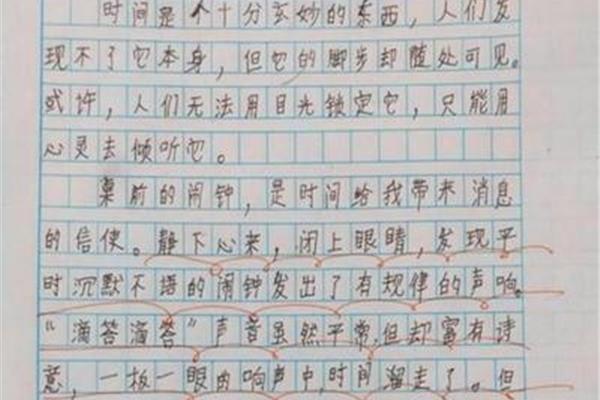 时间是个十分玄妙的东西，人们发
现不了它本身，但它的脚步却随处可见。
或许，人们无法用目光锁定它，只能用
心灵去倾听它。
桌前的闹钟，是时间给我带来消息
的信使。静下心来，闭上眼睛，发现平
时沉默不语的闹钟发出了有规律的声响。
“滴答滴答”声音虽然平常，但却富有诗
意，一板一眼的响声中，时间溜走了。但